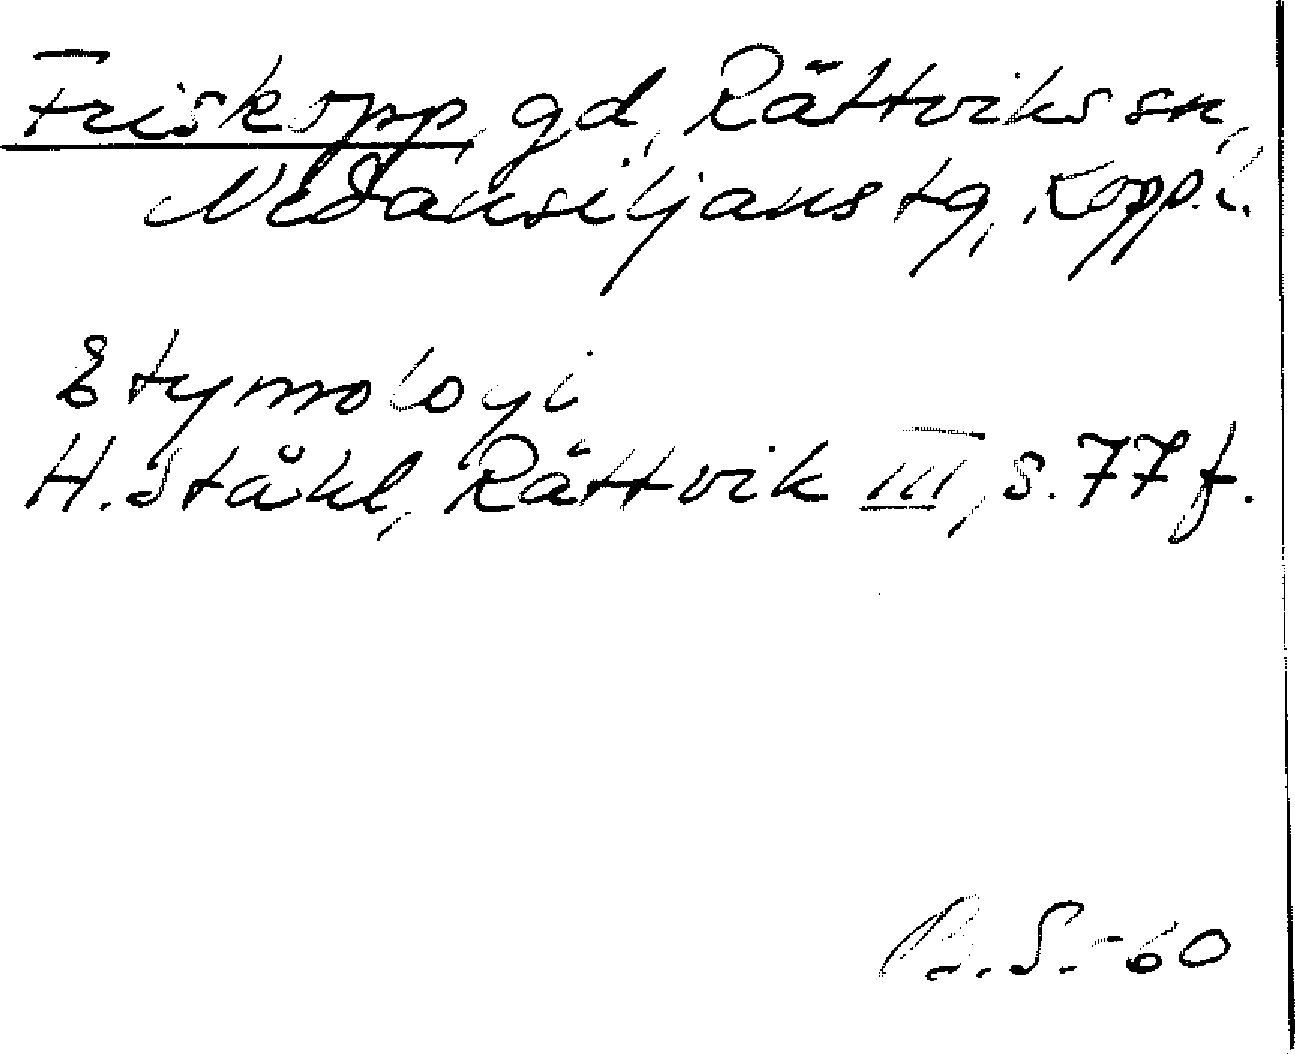 Friskopp, gd, Rättviks sn,
Nedansiljans tg, Kopp. l.
Etymologi
H. Ståhl, Rättvik III, s. 77 f.
B. S. -60